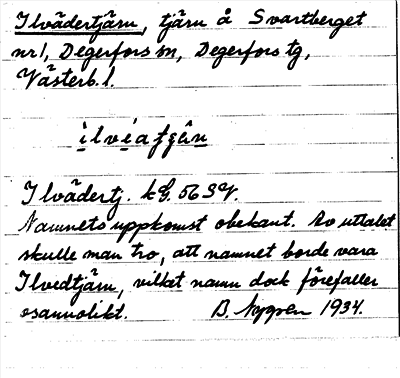 Ilvädertjärn, tjärn å Svartberget
nr 1, Degerfors sn, Degerfors tg,
Västerb. l.
Ilvädertj. kG. 56 SV.
Namnets uppkomst obekant. Av uttalet
skulle man tro, att namnet borde vara
Ilvedtjärn, vilket namn dock förefaller
osannolikt. B. Nygren 1934.